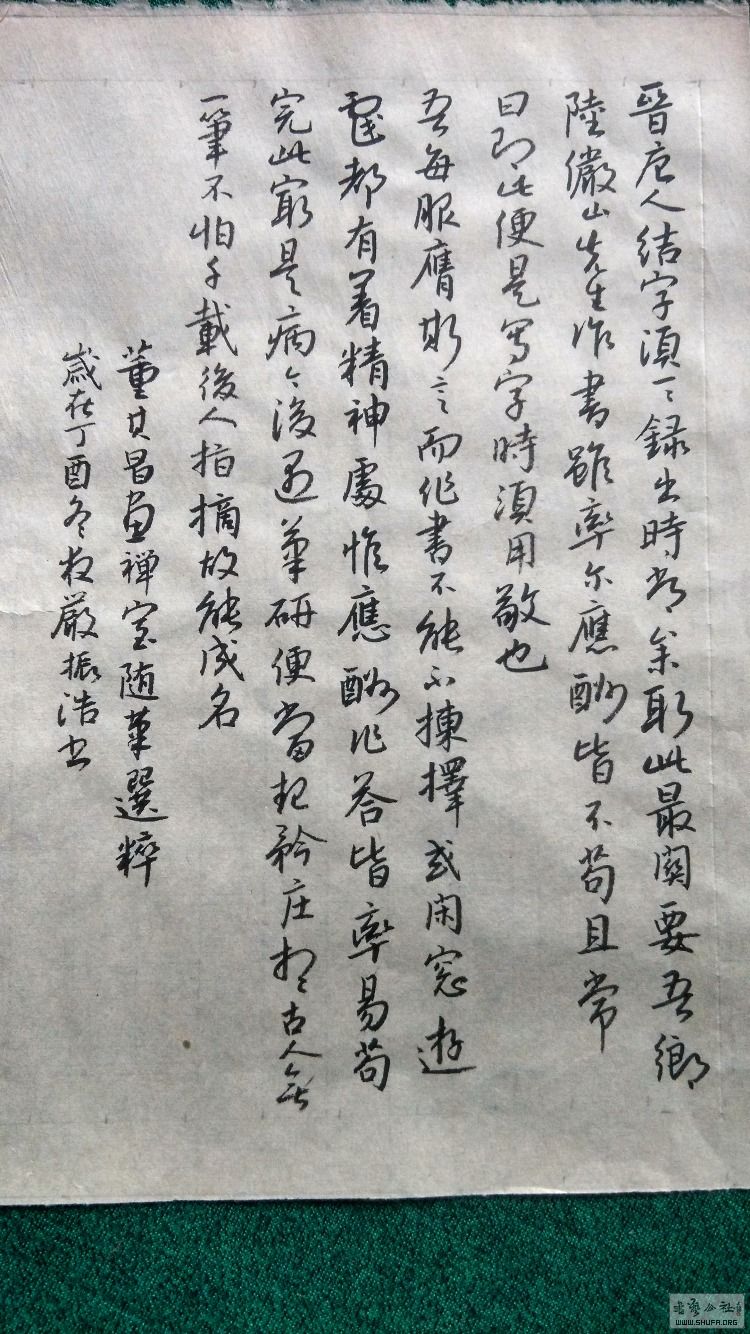 晉唐人結字須一一錄出時常參取此最關要吾鄉
陸儼山先生作書雖率尔應酬皆不苟且常
曰即此便是寫字時須用敬也
吾每服膺斯言而作書不能不揀擇或闲窓遊
戲都有着精神處惟應酬作荅皆率易苟
完此宷是病今後遇筆研便當起矜庄想古人無
一筆不怕千載後人指摘故能成名
董其昌画禅室随筆選粹
歲在丁酉冬
嚴振浩书
书艺公社
WWW.SHUFA.ORG